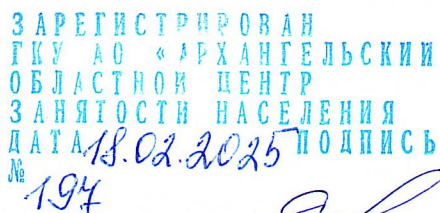 ЗАРЕГИСТРИРОВАН
ГКУ АО «АРХАНГЕЛЬСКИЙ
ОБЛАСТНОЙ ЦЕНТР
ЗАНЯТОСТИ НАСЕЛЕНИЯ
ДАТА 18.02.2025 ПОДПИСЬ
№
197